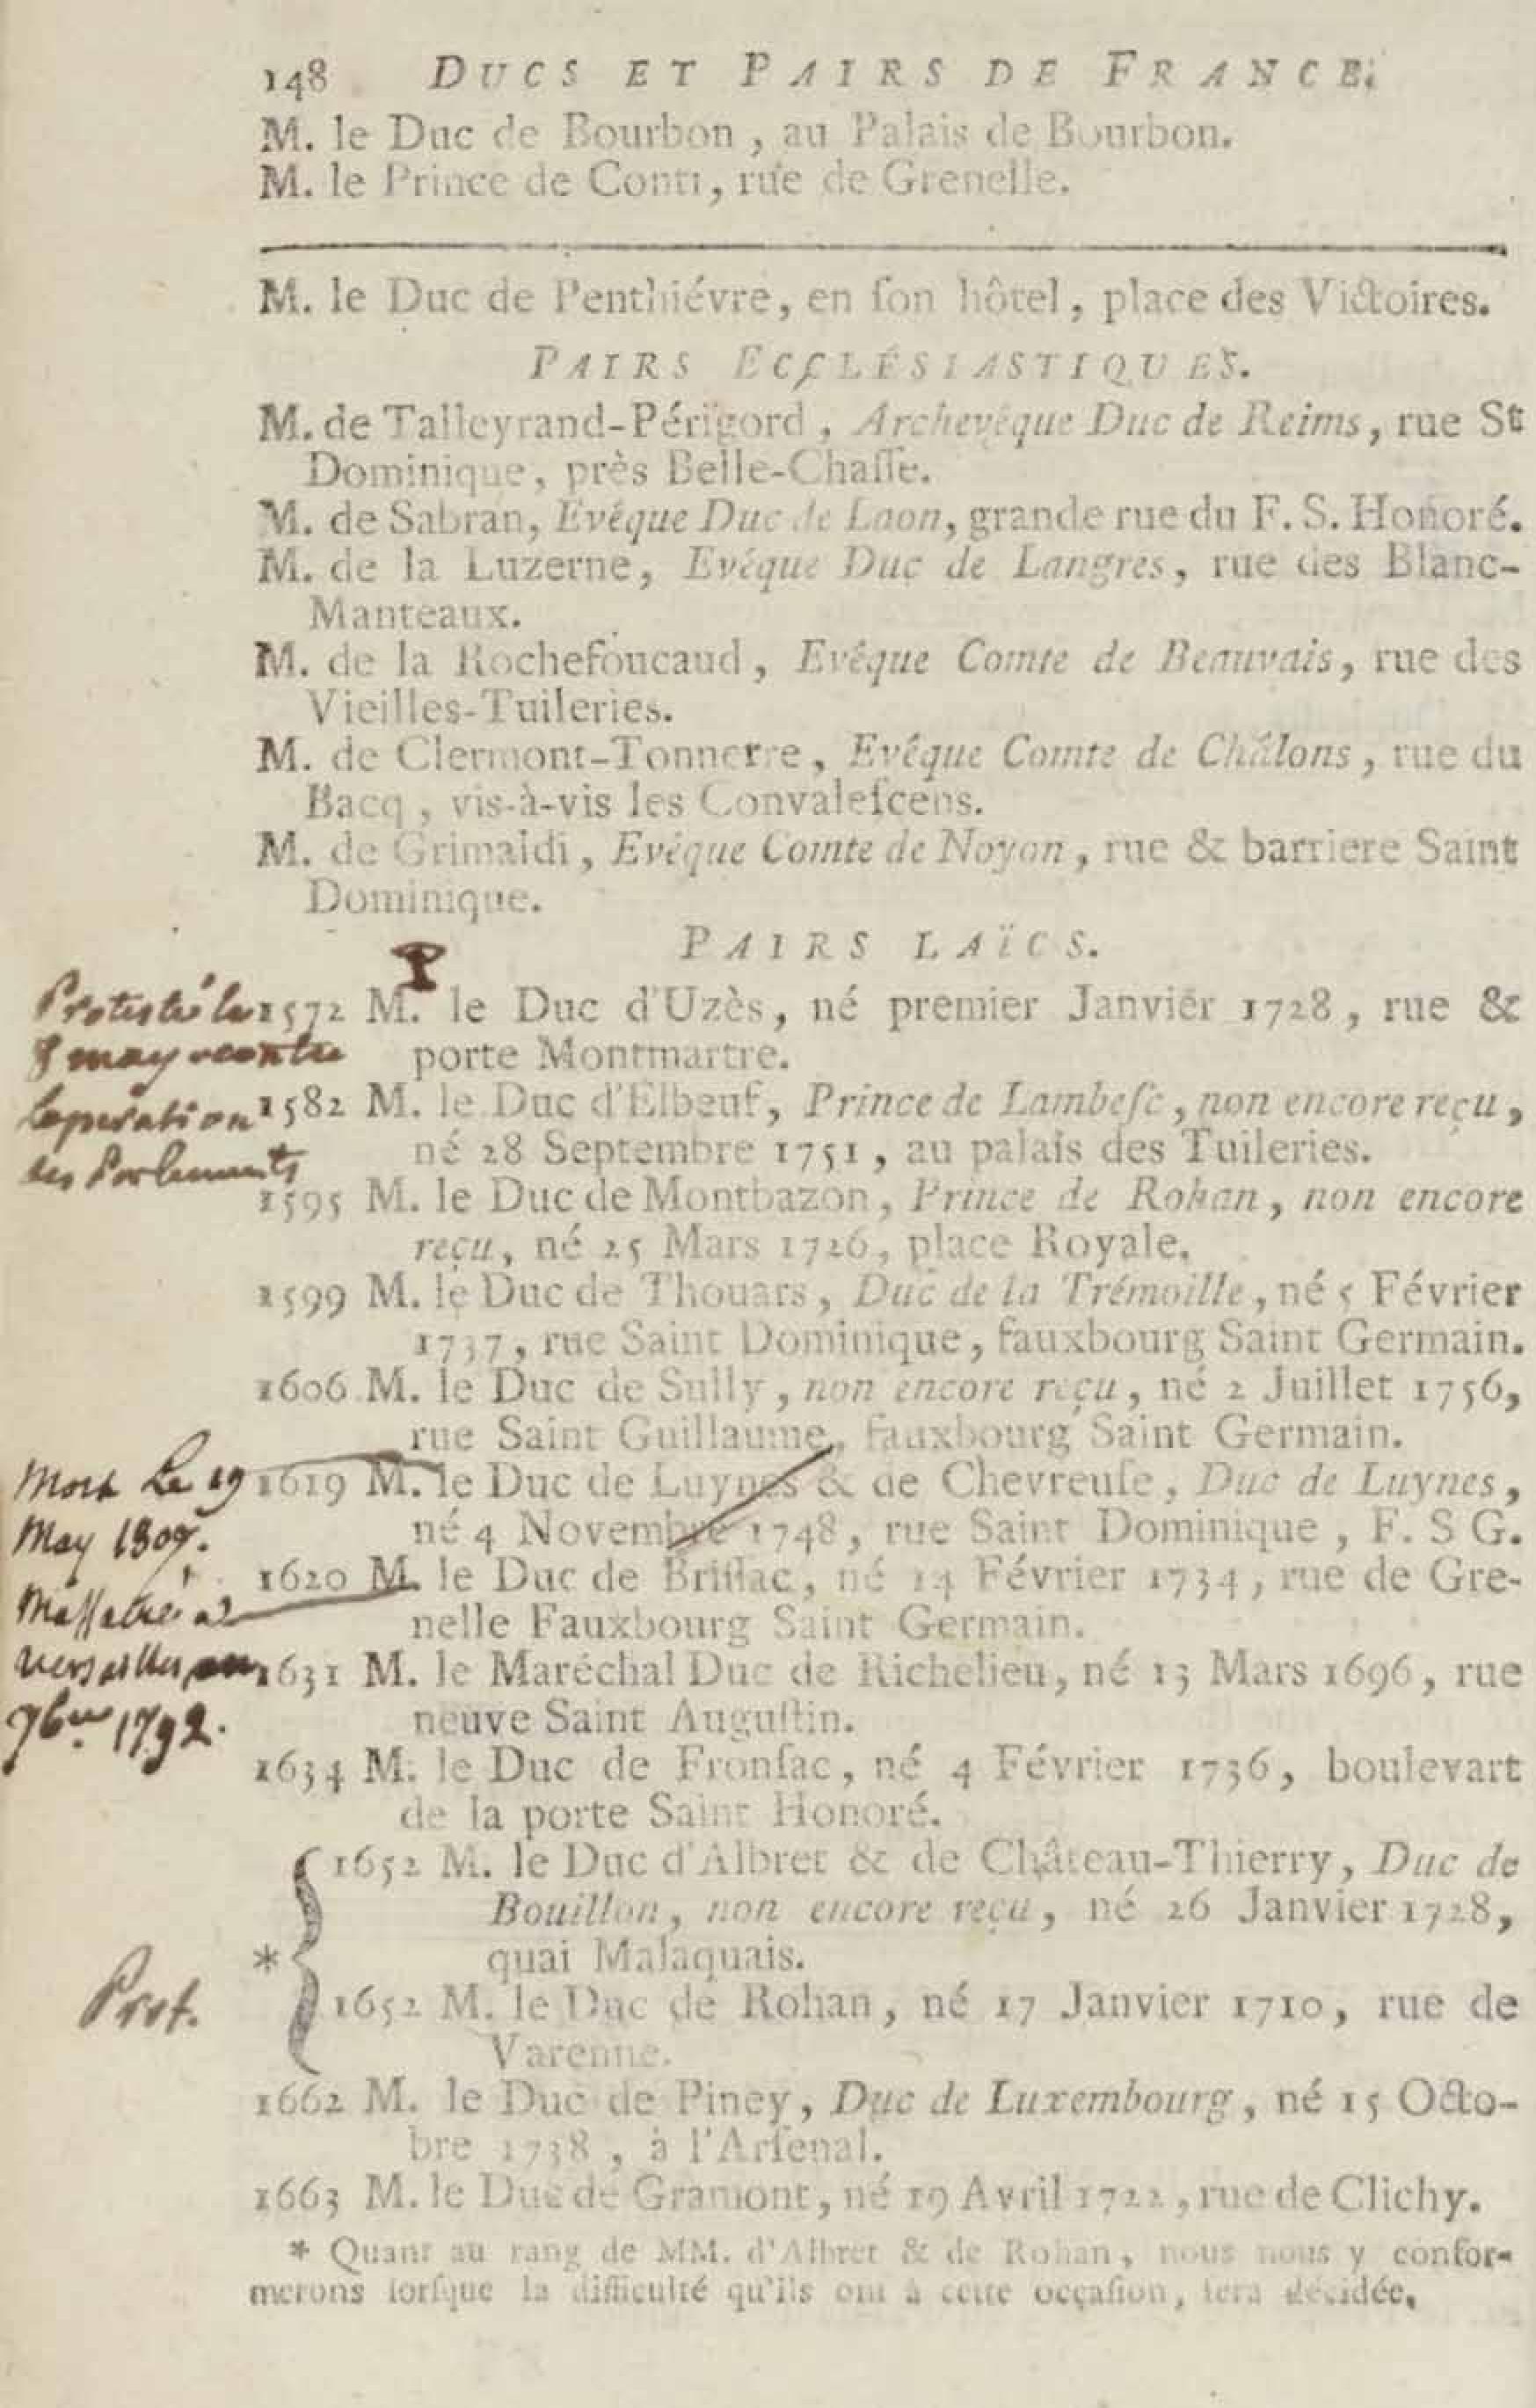 148 DUCS ET PAIRS DE FRANCE.
M. le Duc de Bourbon, au Palais de Bourbon.
M. le Prince de Conti, rue de Grenelle.
M. le Duc de Penthiévre, en ſon hôtel, place des Victoires.
PAIRS ECCLÉSIASTIQUES.
M. de Talleyrand-Périgord, Archevêque Duc de Reims, rue St
Dominique, près Belle-Chaſſe.
M. de Sabran, Evêque Duc de Laon, grande rue du F. S. Honoré.
M. de la Luzerne, Evêque Duc de Langres, rue des Blanc-
Manteaux.
M. de la Rochefoucaud, Evêque Comte de Beauvais, rue des
Vieilles-Tuileries.
M. de Clermont-Tonnerre, Evêque Comte de Châlons, rue du
Bacq, vis-à-vis les Convaleſcens.
M. de Grimaldi, Evêque Comte de Noyon, rue & barriere Saint
Dominique.
PAIRS LAÏCS.
P
Protesté le
8 may contre
des Parlements
1572 M. le Duc d'Uzès, né premier Janvier 1728, rue &
porte Montmartre.
1582 M. le Duc d'Elbeuf, Prince de Lambeſc, non encore reçu,
né 28 Septembre 1751, au palais des Tuileries.
1595 M. le Duc de Montbazon, Prince de Rohan, non encore
reçu, né 25 Mars 1726, place Royale.
1599 M. le Duc de Thouars, Duc de la Trémoille, né 5 Février
1737, rue Saint Dominique, fauxbourg Saint Germain.
1606 M. le Duc de Sully, non encore reçu, né 2 Juillet 1756,
rue Saint Guillaume, fauxbourg Saint Germain.
Mort Le 19
May 1807.
1619 M. le Duc de Luynes & de Chevreuſe, Duc de Luynes,
né 4 Novembre 1748, rue Saint Dominique, F. S G.
Massacré à
versailles en
7bre 1792.
1620 M. le Duc de Briſſac, né 14 Février 1734, rue de Gre-
nelle Fauxbourg Saint Germain.
1631 M. le Maréchal Duc de Richelieu, né 13 Mars 1696, rue
neuve Saint Auguſtin.
1634 M. le Duc de Fronſac, né 4 Février 1736, boulevart
de la porte Saint Honoré.
1652 M. le Duc d'Albret & de Château-Thierry, Duc de
Bouillon, non encore reçu, né 26 Janvier 1728,
quai Malaquais.
*
Prot.
1652 M. le Duc de Rohan, né 17 Janvier 1710, rue de
Varenne.
1662 M. le Duc de Piney, Duc de Luxembourg, né 15 Octo-
bre 1738, à l'Arſenal.
1663 M. le Duc de Gramont, né 19 Avril 1722, rue de Clichy.
* Quant au rang de MM. d'Albret & de Rohan, nous nous y confor-
merons lorſque la difficulté qu'ils ont à cette occaſion, ſera décidée.